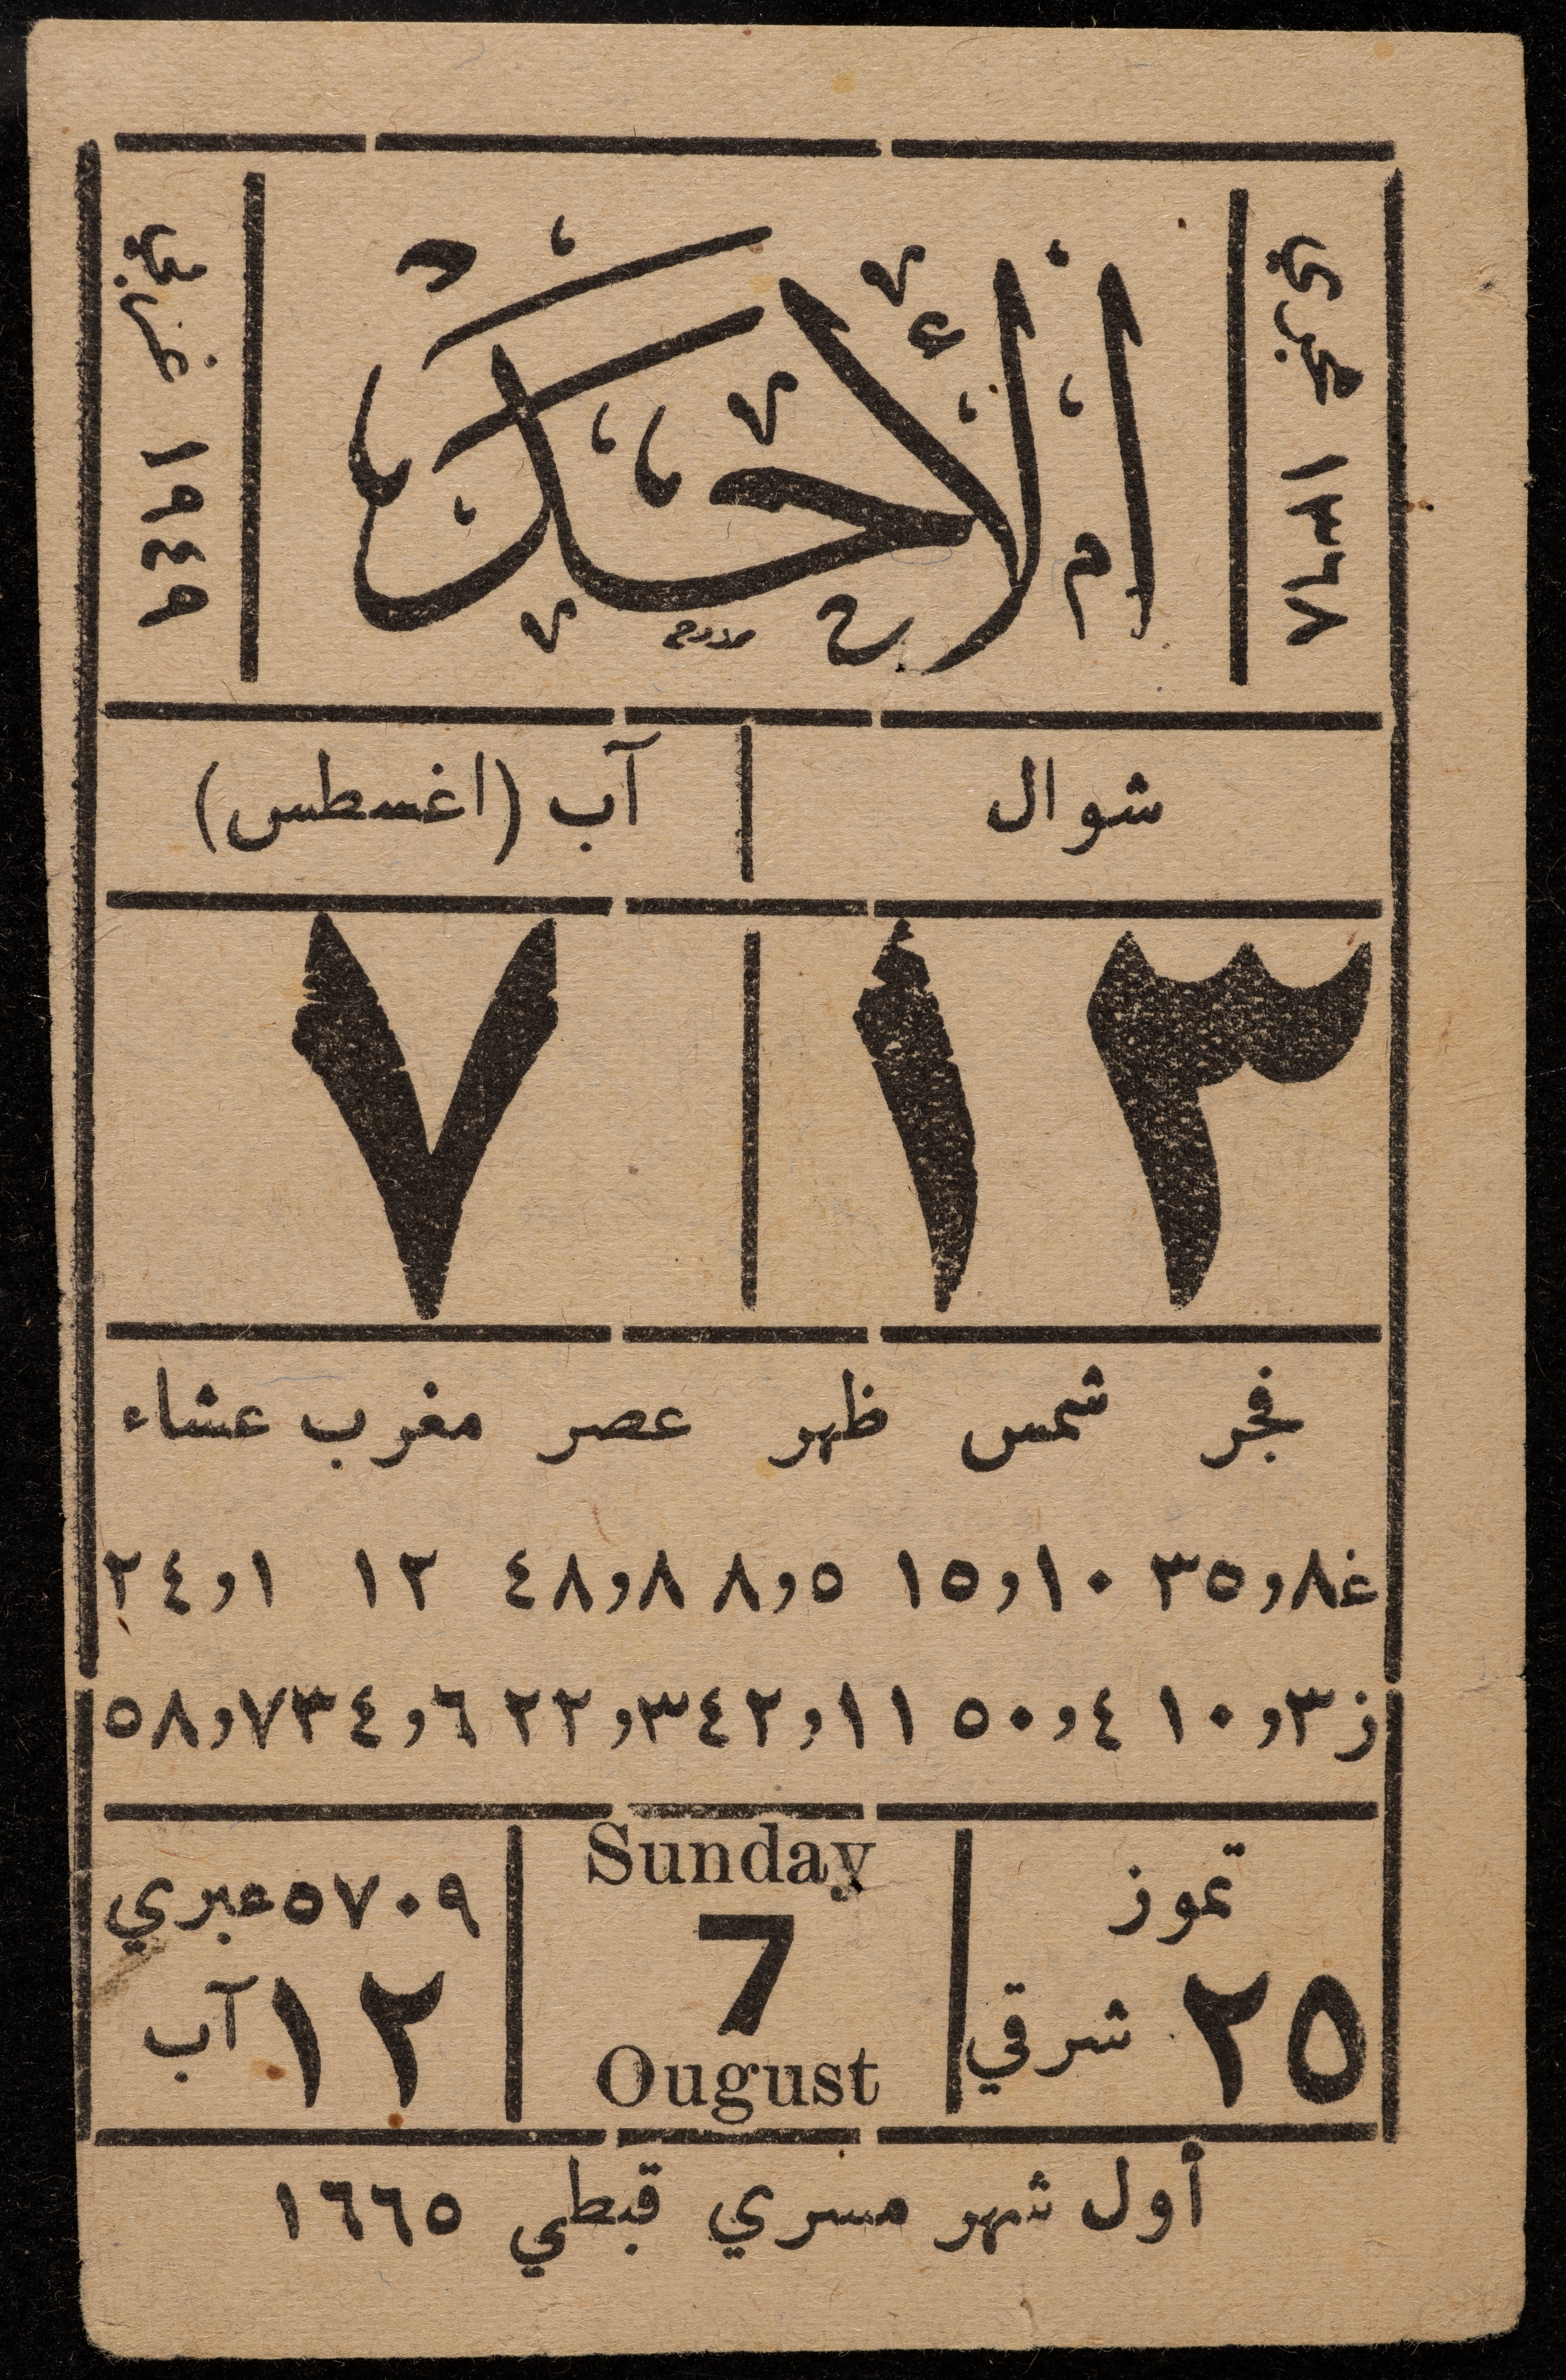 هجري ١٣٦٨
الأحد
غربي ١٩٤٩
شوال
آب (اغسطس)
١٣
٧
فجر شمس ظهر عصر مغرب عشاء
غ٨و٣٥ ١٠و١٥ ٥و٨ ٨و٤٨ ١٢ ١و٢٤
ز٣و١٠ ٤و٥٠ ١١و٤٢ ٣و٢٢ ٦و٣٤ ٧و٥٨
تموز
٢٥ شرقي
Sunday
7
Ougust
٥٧٠٩ عبري
١٢ آب
أول شهر مسري قبطي ١٦٦٥